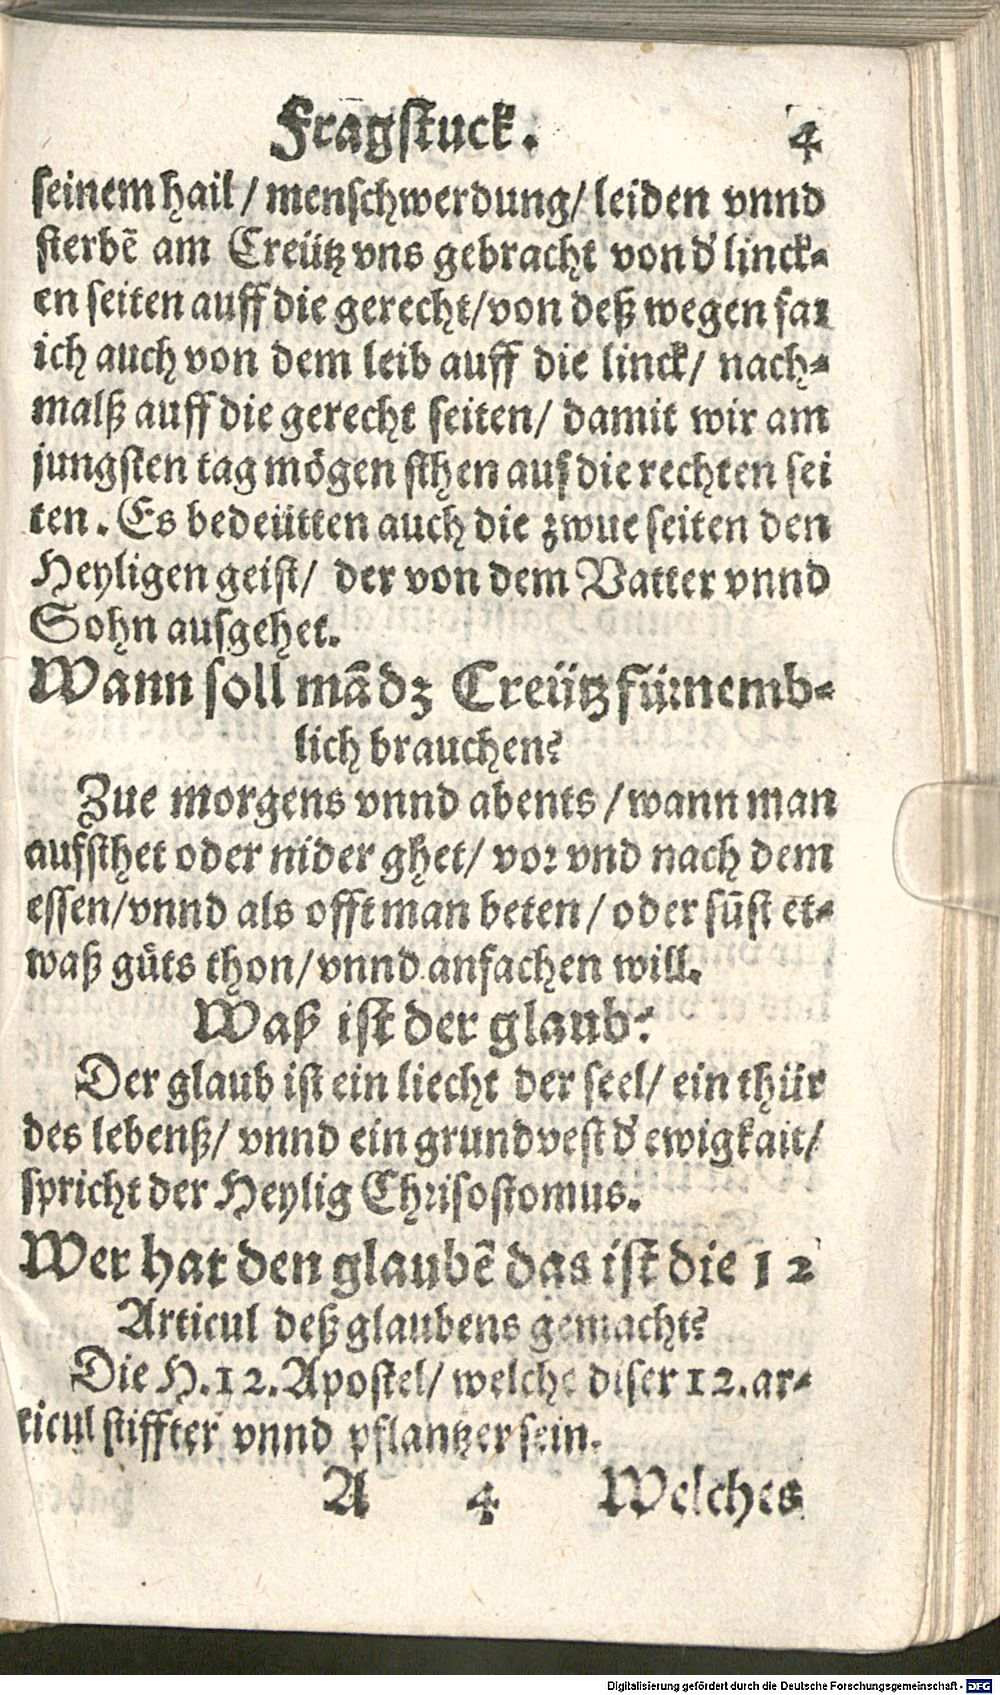 Fragstuck. 4
seinem hail / menschwerdung / leiden vnnd
sterbẽ am Creütz vns gebracht von d' linck-
en seiten auff die gerecht / von deß wegen far
ich auch von dem leib auff die linck / nach-
malß auff die gerecht seiten / damit wir am
jungsten tag mögen sthen auf die rechten sei
ten. Es bedeütten auch die zwue seiten den
Heyligen geist / der von dem Vatter vnnd
Sohn ausgehet.
Wann soll mã dz Creütz fürnemb-
lich brauchen?
Zue morgens vnnd abents / wann man
aufsthet oder nider ghet / vor vnd nach dem
essen / vnnd als offt man beten / oder sũst et-
waß gůts thon / vnnd anfachen will.
Waß ist der glaub?
Der glaub ist ein liecht der seel / ein thür
des lebenß / vnnd ein grundvest d' ewigkait /
spricht der Heylig Chrisostomus.
Wer hat den glaubẽ das ist die 12
Articul deß glaubens gemacht?
Die H. 12. Apostel / welche diser 12. ar-
ticul stiffter vnnd pflantzer sein.
A 4 Welches
Digitalisierung gefördert durch die Deutsche Forschungsgemeinschaft - DFG